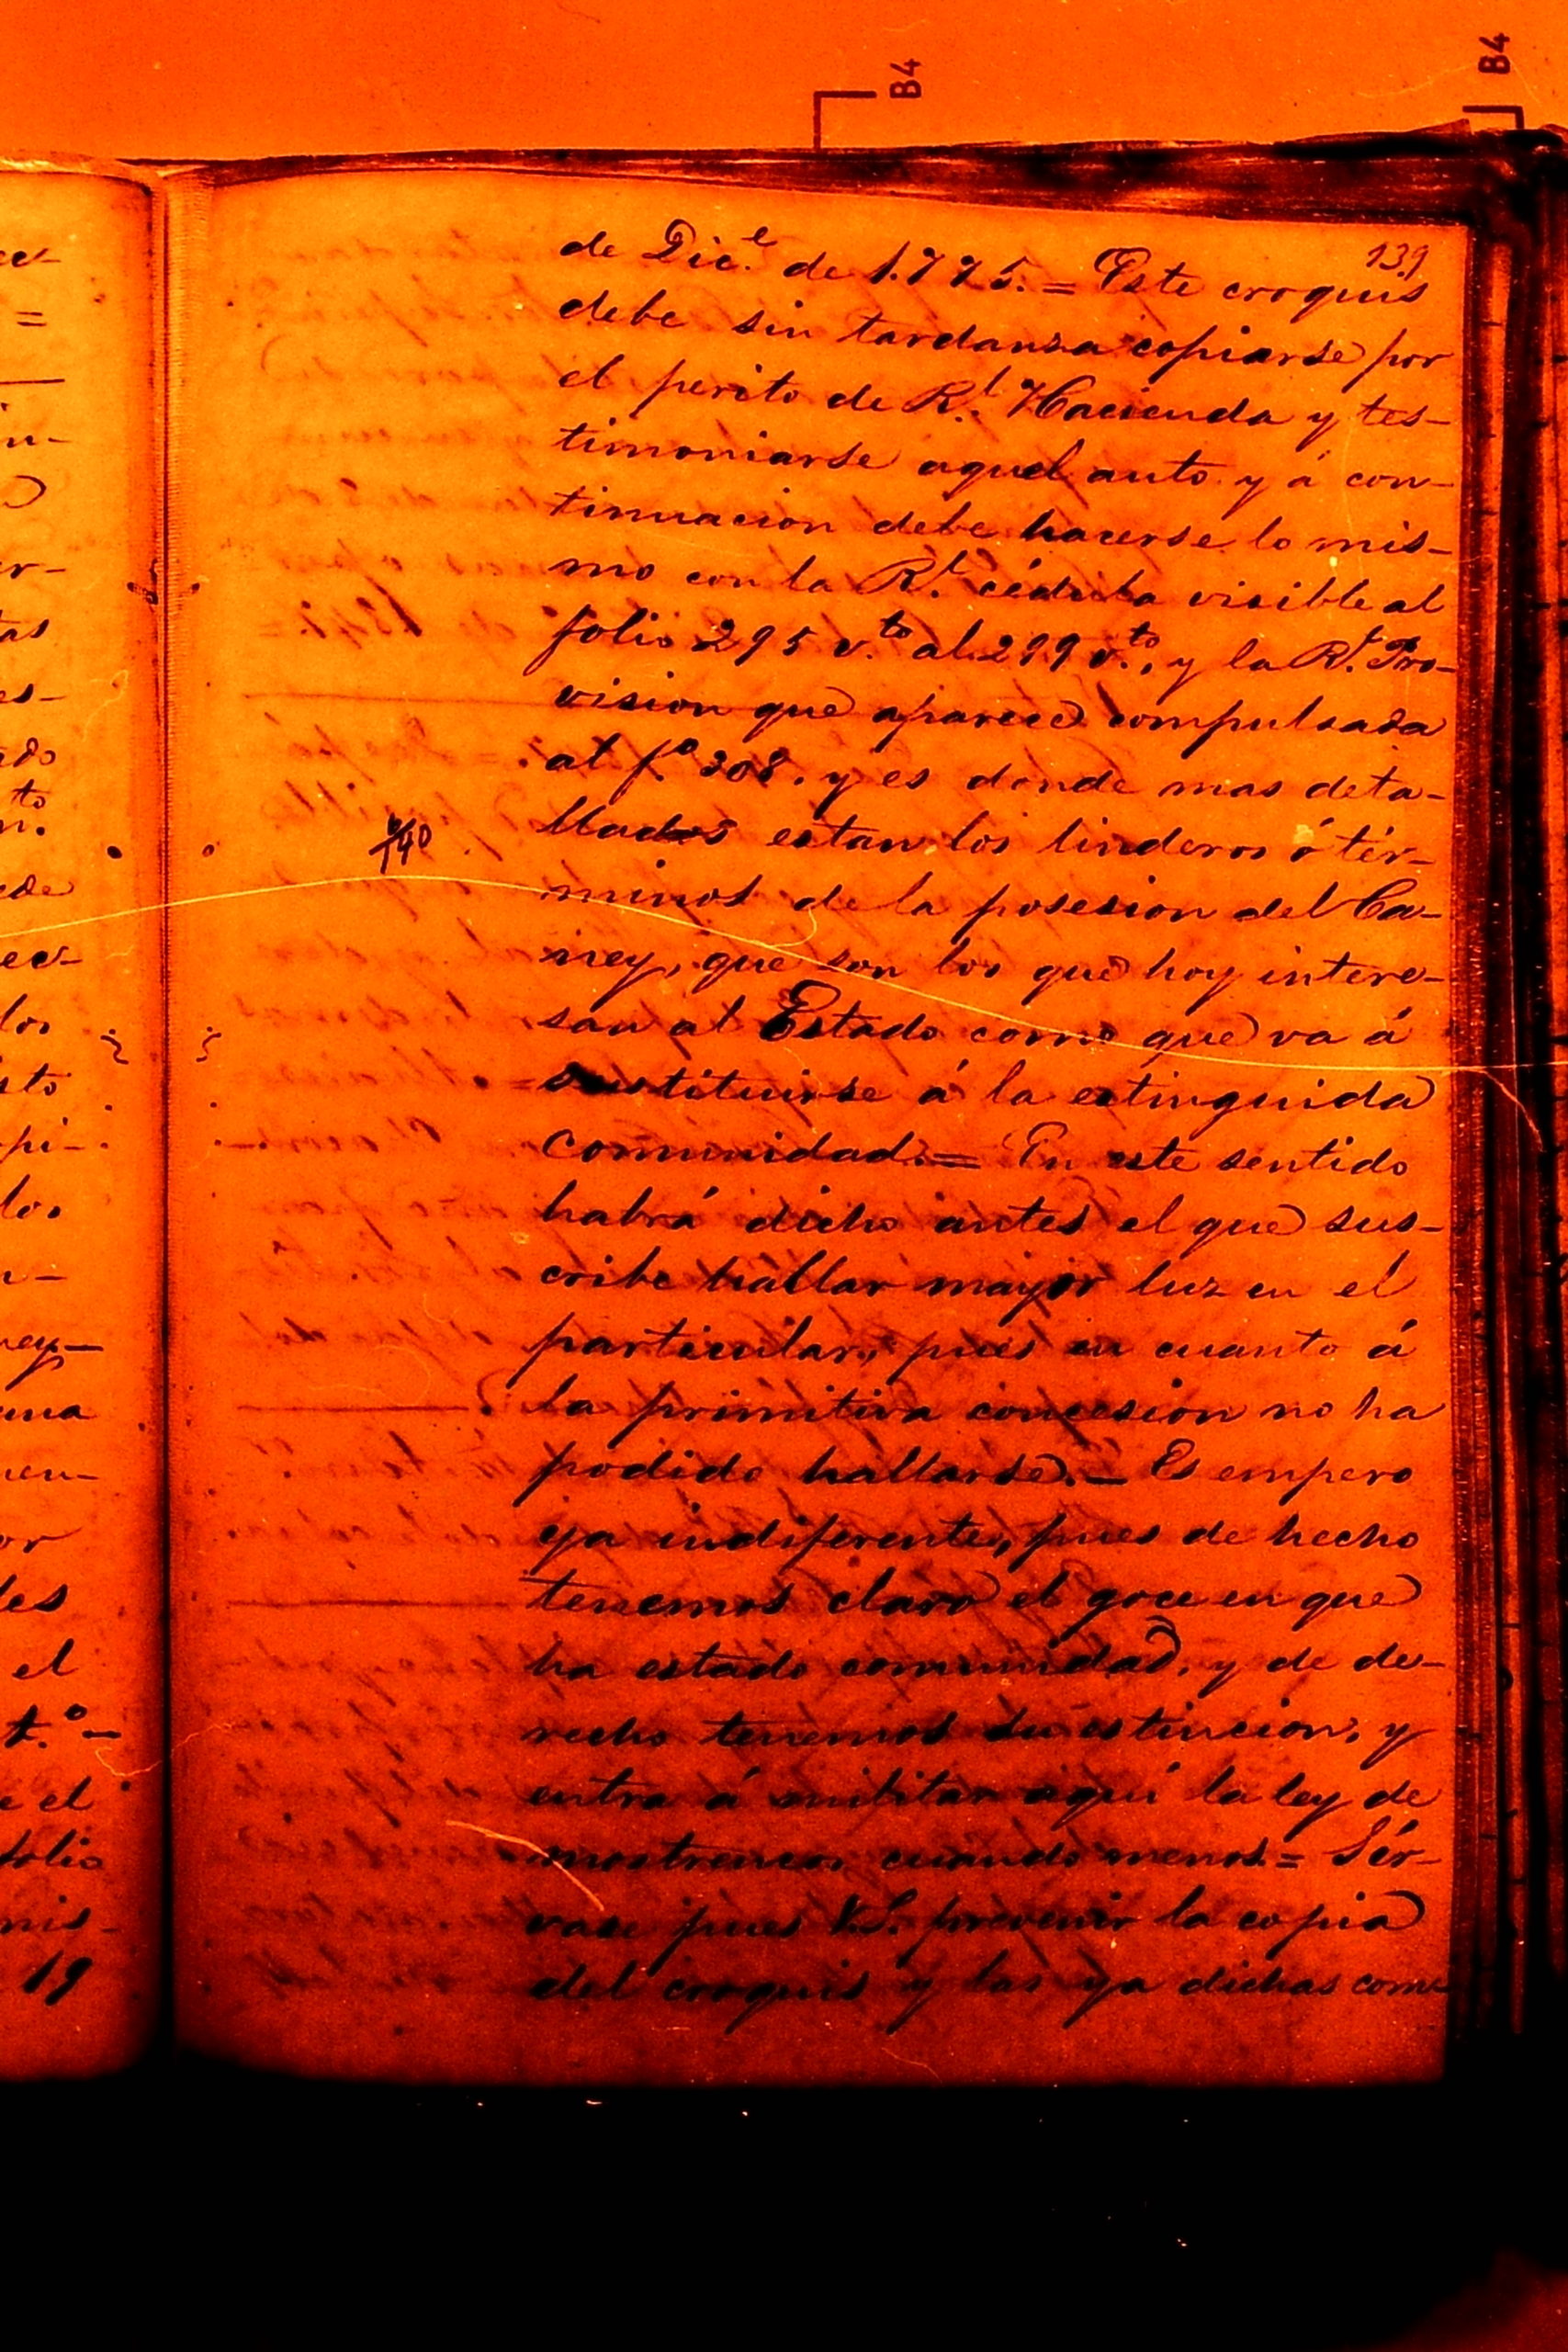 B4
B4
139
de Dic.e de 1.775. = Este croquis
debe sin tardanza copiarse por
el perito de R.l Hacienda y tes-
timoniarse aquel auto y á con-
tinuacion debe hacerse lo mis-
mo con la R.l cédula visible al
folio 295 v.to al 299 v.to, y la R.l Pro-
vision que aparece compulsada
al f.o 308. y es donde mas deta-
llados estan los linderos ó tér-
140
minos de la posesion del Ca-
ney, que son los que hoy intere-
san al Estado como que va á
sustituirse á la estinguida
comunidad. = En este sentido
habrá dicho antes el que sus-
cribe hallar mayor luz en el
particular, pues en cuanto á
la primitiva concesion no ha
podido hallarse. = Es empero
ya indiferente, pues de hecho
tenemos claro el goce en que
ha estado comunidad, y de de-
recho tenemos su estincion, y
entra á militar aquí la ley de
mostrencos cuando menos = Sír-
vase pues V.S. prevenir la copia
del croquis y las ya dichas com